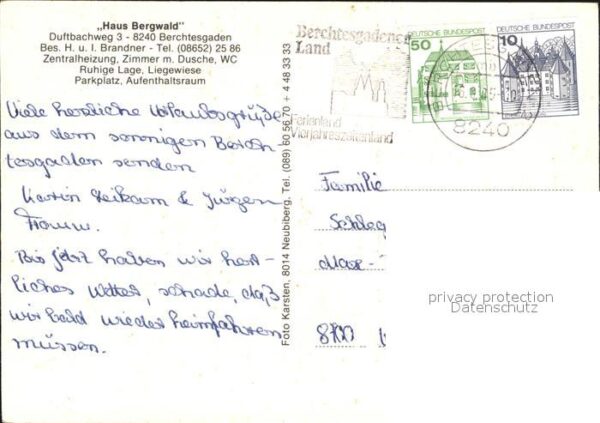 „Haus Bergwald"
Duftbachweg 3 - 8240 Berchtesgaden
Bes. H. u. I. Brandner - Tel. (08652) 25 86
Zentralheizung, Zimmer m. Dusche, WC
Ruhige Lage, Liegewiese
Parkplatz, Aufenthaltsraum
Viele herzliche Urlaubsgrüße
aus dem sonnigen Berch-
tesgaden senden
Karin & Jürgen
Bis jetzt haben wir herr-
liches Wetter, schade, daß
wir bald wieder heimfahren
müssen.
Foto Karsten. 8014 Neubiberg. Tel. (089) 60 56 70 + 4 48 33 33
Berchtesgadener
Land
Ferienland
Vierjahreszeitenland
50
DEUTSCHE BUNDESPOST
10
DEUTSCHE BUNDESPOST
8240
Familie
Schleg
Max-
privacy protection
Datenschutz